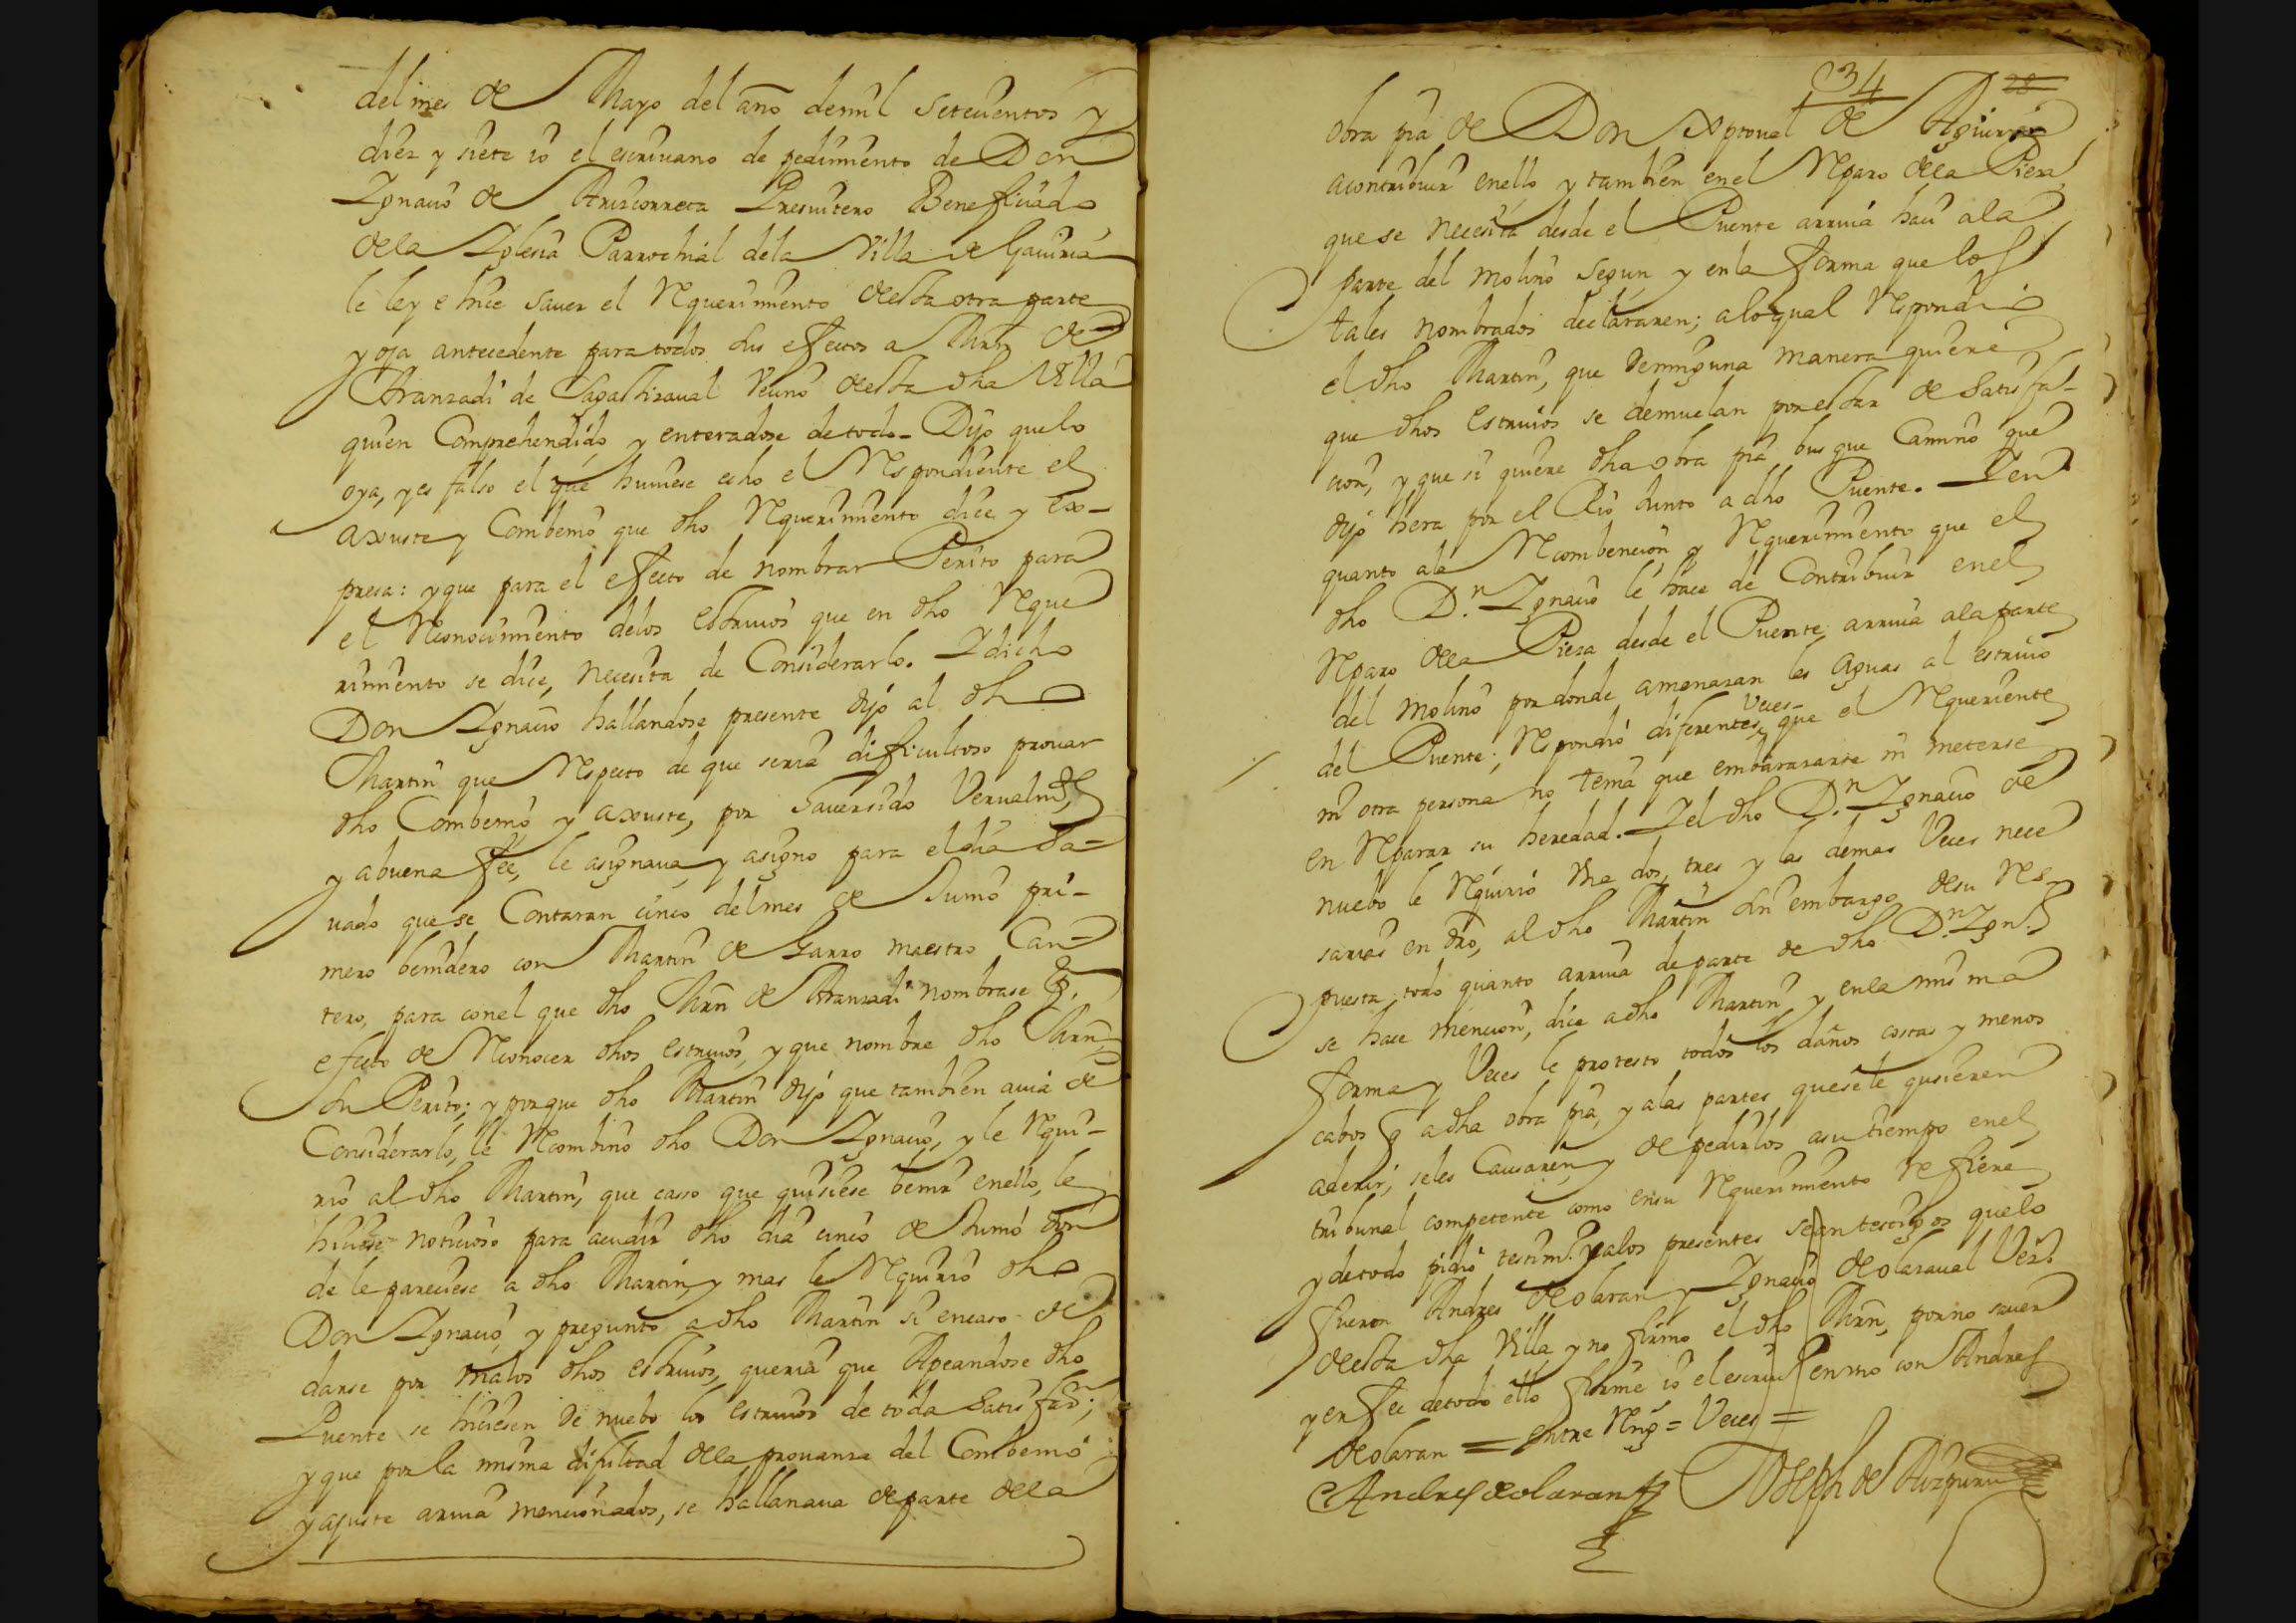 del mes de Mayo del año de mil setecientos y
diez y siete io el escriuano de pedimiento de Don
Ygnacio de Arizcorreta Presuitero Beneficiado
de la Yglesia Parrochial de la Villa de Gauiria
le ley e hice sauer el Requerimiento de esta otra parte
y oja antecedente para todos sus efectos a Mrn de
Aranzadi de Sagastizaual vecino de esta dha Villa
quien Comprehendido y enteradose de todo - Dijo que lo
oya, y es falso el que huuiese echo el Respondiente el
axuste y Combenio que dho Requerimiento dice y ex-
presa: y que para el efecto de nombrar Perito para
el Reconocimiento de los estriuos que en dho Reque
rimiento se dice, necesita de Considerarlo. Y dicho
Don Ygnacio hallandose presente dijo al dho
Martin que Respecto de que seria dificultoso prouar
dho Combenio y axuste, por hauer sido Verualmte,
y a buena fee, le asignaua y asigno para el dia sa=
uado que se Contaran cinco del mes de Junio pri-
mero benidero con Martin de Garro maestro Can=
tero, para con el que dho Mrn de Aranzadi nombrase pa.
efecto de Reconocer dhos estriuos, y que nombre dho Mrn
su Perito; y porque dho Martin dijo que tambien auia de
Considerarlo, le Recombino dho Don Ygnacio, y le Requi-
rio al dho Martin, que casso que quisiese benir en ello, le
hiciese noticioso para acudir dho dia cinco de Junio don
de le pareciese a dho Martin y mas le Requirio dho
Don Ygnacio, y pregunto a dho Martin si en caso de
darse por malos dhos estriuos, queria que Apeandose dho
Puente se hiciesen de nuebo los estriuos de toda satisfaon;
y que por la misma dificultad de la prouanza del Combenio
y ajuste arriua mencionados, se hallanaua de parte de la
34 28
obra pia de Don Xptoual de Aguirre
a contribuir en ello y tambien en el Reparo de la Pieza
que se necesita desde el Puente arriua hacia la
parte del molino segun y en la forma que los
tales nombrados declararen; a lo qual Respondio
el dho Martin, que de ninguna manera quiere
que dhos estriuos se demuelan por estar de satisfac-
cion, y que si quiere dha obra pia busque Camino que
dijo hera por el Rio Junto a dho Puente. Y en
quanto a la Recombencion y Requerimiento que el
dho Dn. Ygnacio le hace de Contribuir en el
Reparo de la Pieza desde el Puente arriua a la parte
del molino por donde amenazan las aguas al estriuo
Veces-
del Puente; Respondio diferentes que el Requeriente
ni otra persona no tenia que embarazarse ni meterse
en Reparar su heredad. Y el dho Dn. Ygnacio de
nuebo le Requirio Vna dos, tres y las demas Veces nece
sarias en dro, al dho Martin sin embargo de su Res-
puesta todo quanto arriua de parte de dho Dn. Ygno.
se hace mencion, dice a dho Martin y en la misma
forma y Veces le protesto todos los daños costas y menos
cabos q a dha obra pia, y a las partes que se le quisieren
aderir, se les Causaren y de pedirlos a su tiempo en el
tribunal competente como en su Requerimiento refiere
y de todo pidio testimo. y a los presentes sean testigos que lo
fueron Andres de olaran y Ygnacio de olazaual Vezos.
de esta dha Villa y no firmo el dho Mrn, por no sauer
y en fee de todo ello firme io el escriuo en vno con Andres
de olaran = entre Rengs = Veces =
Andres de olaran Joseph de Aizpuru